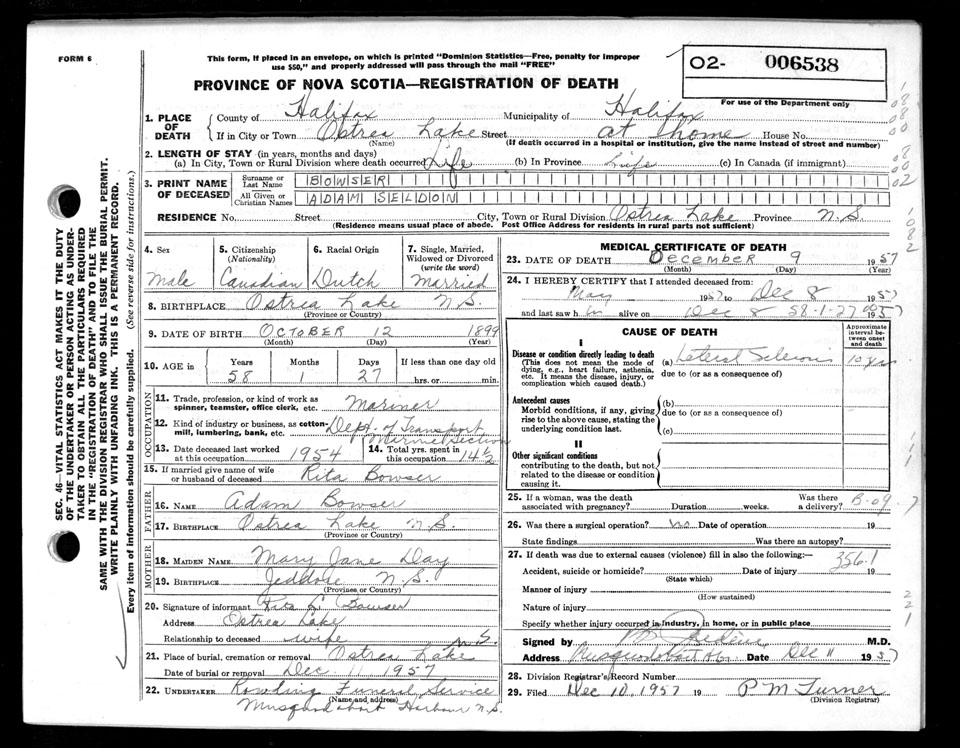 FORM 6
This form, if placed in an envelope, on which is printed "Dominion Statistics—Free, penalty for improper
use $50," and properly addressed will pass through the mail "FREE"
O2- 006538
For use of the Department only
PROVINCE OF NOVA SCOTIA—REGISTRATION OF DEATH
SEC. 46—VITAL STATISTICS ACT MAKES IT THE DUTY
OF THE UNDERTAKER OR PERSON ACTING AS UNDER-
TAKER TO OBTAIN ALL THE PARTICULARS REQUIRED
IN THE "REGISTRATION OF DEATH" AND TO FILE THE
SAME WITH THE DIVISION REGISTRAR WHO SHALL ISSUE THE BURIAL PERMIT.
WRITE PLAINLY WITH UNFADING INK. THIS IS A PERMANENT RECORD.
Every item of information should be carefully supplied. (See reverse side for instructions.)
1. PLACE OF DEATH County of Halifax Municipality of Halifax
If in City or Town Ostrea Lake Street at home House No.
(Name) (If death occurred in a hospital or institution, give the name instead of street and number)
2. LENGTH OF STAY (in years, months and days)
(a) In City, Town or Rural Division where death occurred Life (b) In Province Life (c) In Canada (if immigrant)
3. PRINT NAME OF DECEASED Surname or Last Name BOWSER
All Given or Christian Names ADAM SELDON
RESIDENCE No. Street City, Town or Rural Division Ostrea Lake Province N.S.
(Residence means usual place of abode. Post Office Address for residents in rural parts not sufficient)
4. Sex Male
5. Citizenship (Nationality) Canadian
6. Racial Origin Dutch
7. Single, Married, Widowed or Divorced (write the word) Married
8. BIRTHPLACE Ostrea Lake N.S.
(Province or Country)
9. DATE OF BIRTH OCTOBER 12 1899
(Month) (Day) (Year)
10. AGE in Years 58 Months 1 Days 27 If less than one day old hrs. or min.
OCCUPATION
11. Trade, profession, or kind of work as spinner, teamster, office clerk, etc. Mariner
12. Kind of industry or business, as cotton-mill, lumbering, bank, etc. Dept. of Transport Marine Section
13. Date deceased last worked at this occupation 1954
14. Total yrs. spent in this occupation 14½
15. If married give name of wife or husband of deceased Rita Bowser
FATHER
16. NAME Adam Bowser
17. BIRTHPLACE Ostrea Lake N.S.
(Province or Country)
MOTHER
18. MAIDEN NAME Mary Jane Day
19. BIRTHPLACE Jeddore N.S.
(Province or Country)
20. Signature of informant Rita Bowser
Address Ostrea Lake
Relationship to deceased wife
21. Place of burial, cremation or removal Ostrea Lake N.S.
Date of burial or removal Dec 11 1957
22. UNDERTAKER Rowling Funeral Service
(Name and address)
Musquodoboit Harbour N.S.
MEDICAL CERTIFICATE OF DEATH
23. DATE OF DEATH DECEMBER 9 1957
(Month) (Day) (Year)
24. I HEREBY CERTIFY that I attended deceased from:
May 1957 to Dec 8 1957
and last saw him alive on Dec 8 58-1-27 1957
CAUSE OF DEATH
Approximate interval between onset and death
I
Disease or condition directly leading to death (a) Lateral Sclerosis 10 yrs
(This does not mean the mode of dying, e.g., heart failure, asthenia, etc. It means the disease, injury, or complication which caused death.)
due to (or as a consequence of)
Antecedent causes (b)
Morbid conditions, if any, giving rise to the above cause, stating the underlying condition last.
due to (or as a consequence of)
(c)
II
Other significant conditions
contributing to the death, but not related to the disease or condition causing it.
25. If a woman, was the death associated with pregnancy? Duration weeks. Was there a delivery? B-09
26. Was there a surgical operation? no Date of operation 19
State findings Was there an autopsy?
27. If death was due to external causes (violence) fill in also the following:—
356.1
Accident, suicide or homicide? Date of injury 19
(State which)
Manner of injury
(How sustained)
Nature of injury
Specify whether injury occurred in Industry, in home, or in public place
Signed by M.D.
Address Date Dec 11 1957
28. Division Registrar's Record Number
29. Filed Dec 10, 1957 19 P M Turner
(Division Registrar)